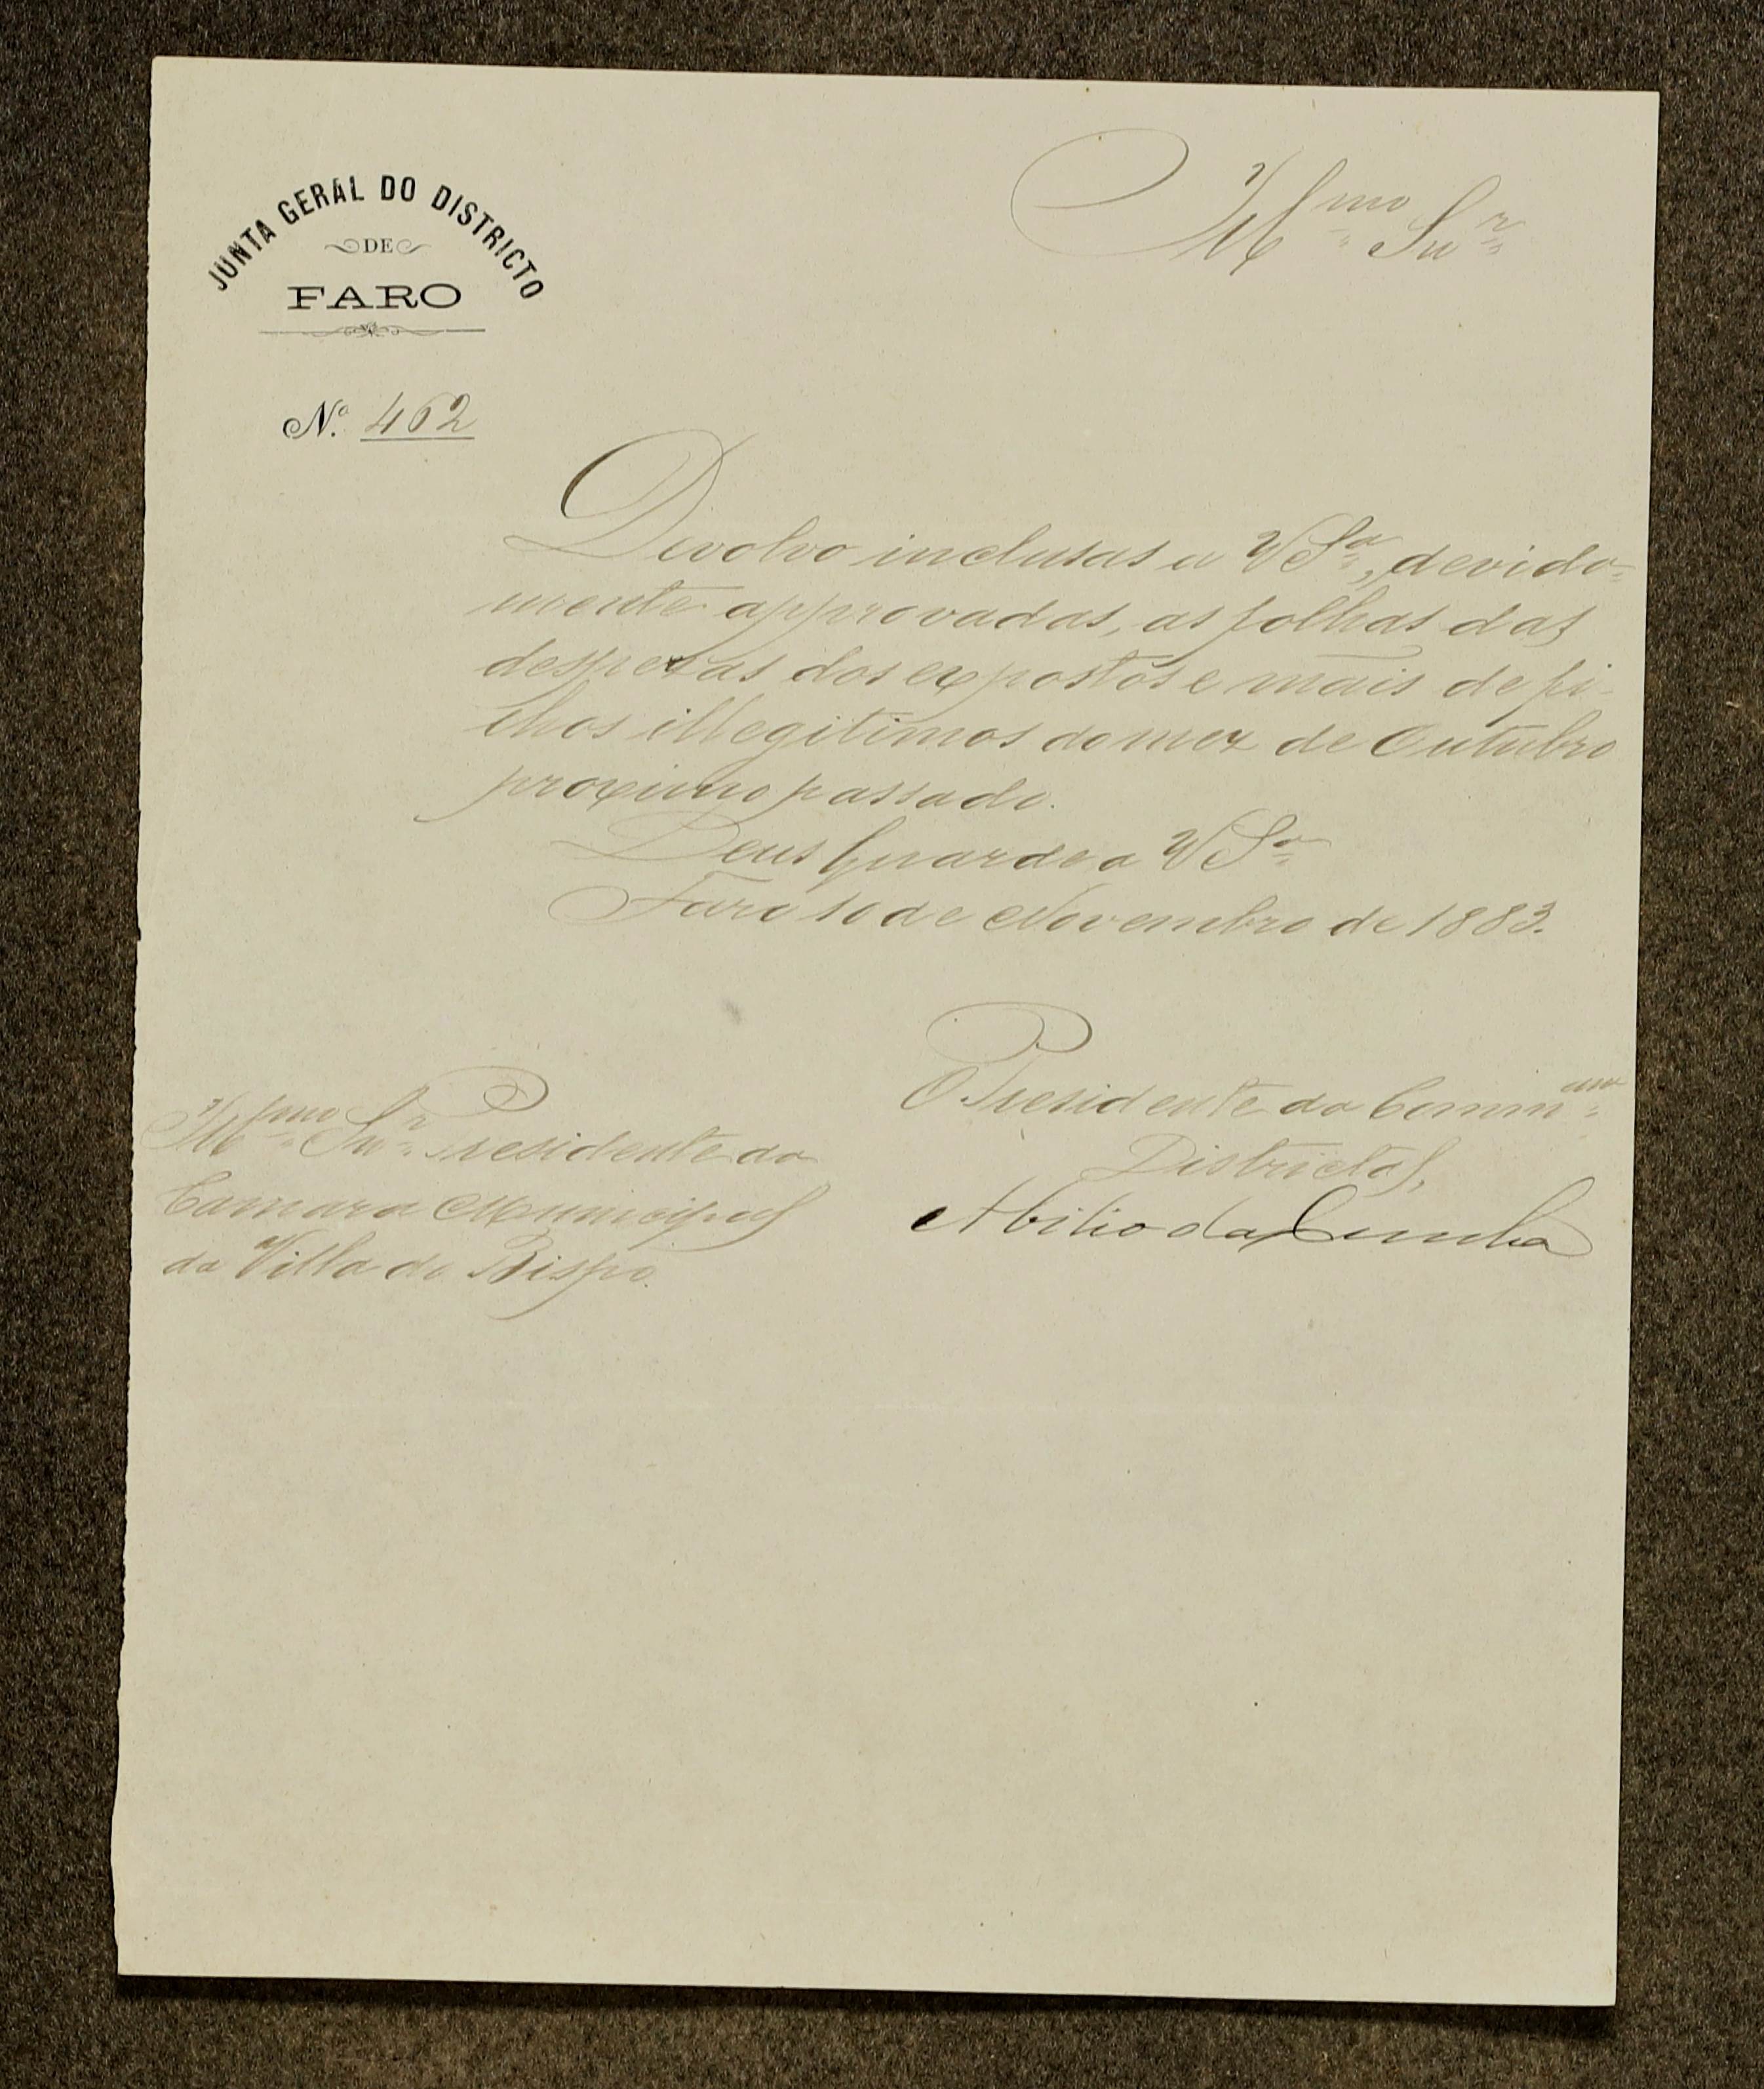 JUNTA GERAL DO DISTRICTO
DE
FARO
N.º 462
Illmo Snr
Devolvo inclusas a V Sa, devida=
mente approvadas, as folhas das
despezas dos expostos e mais de fi-
lhos illegitimos do mez de Outubro
proximo passado.
Deus Guarde a V Sa
Faro 10 de Novembro de 1883.
O Presidente da Commam
Districtal,
Abilio da Cunha
Illmo Snr Presidente da
Camara Municipal
da Villa do Bispo.